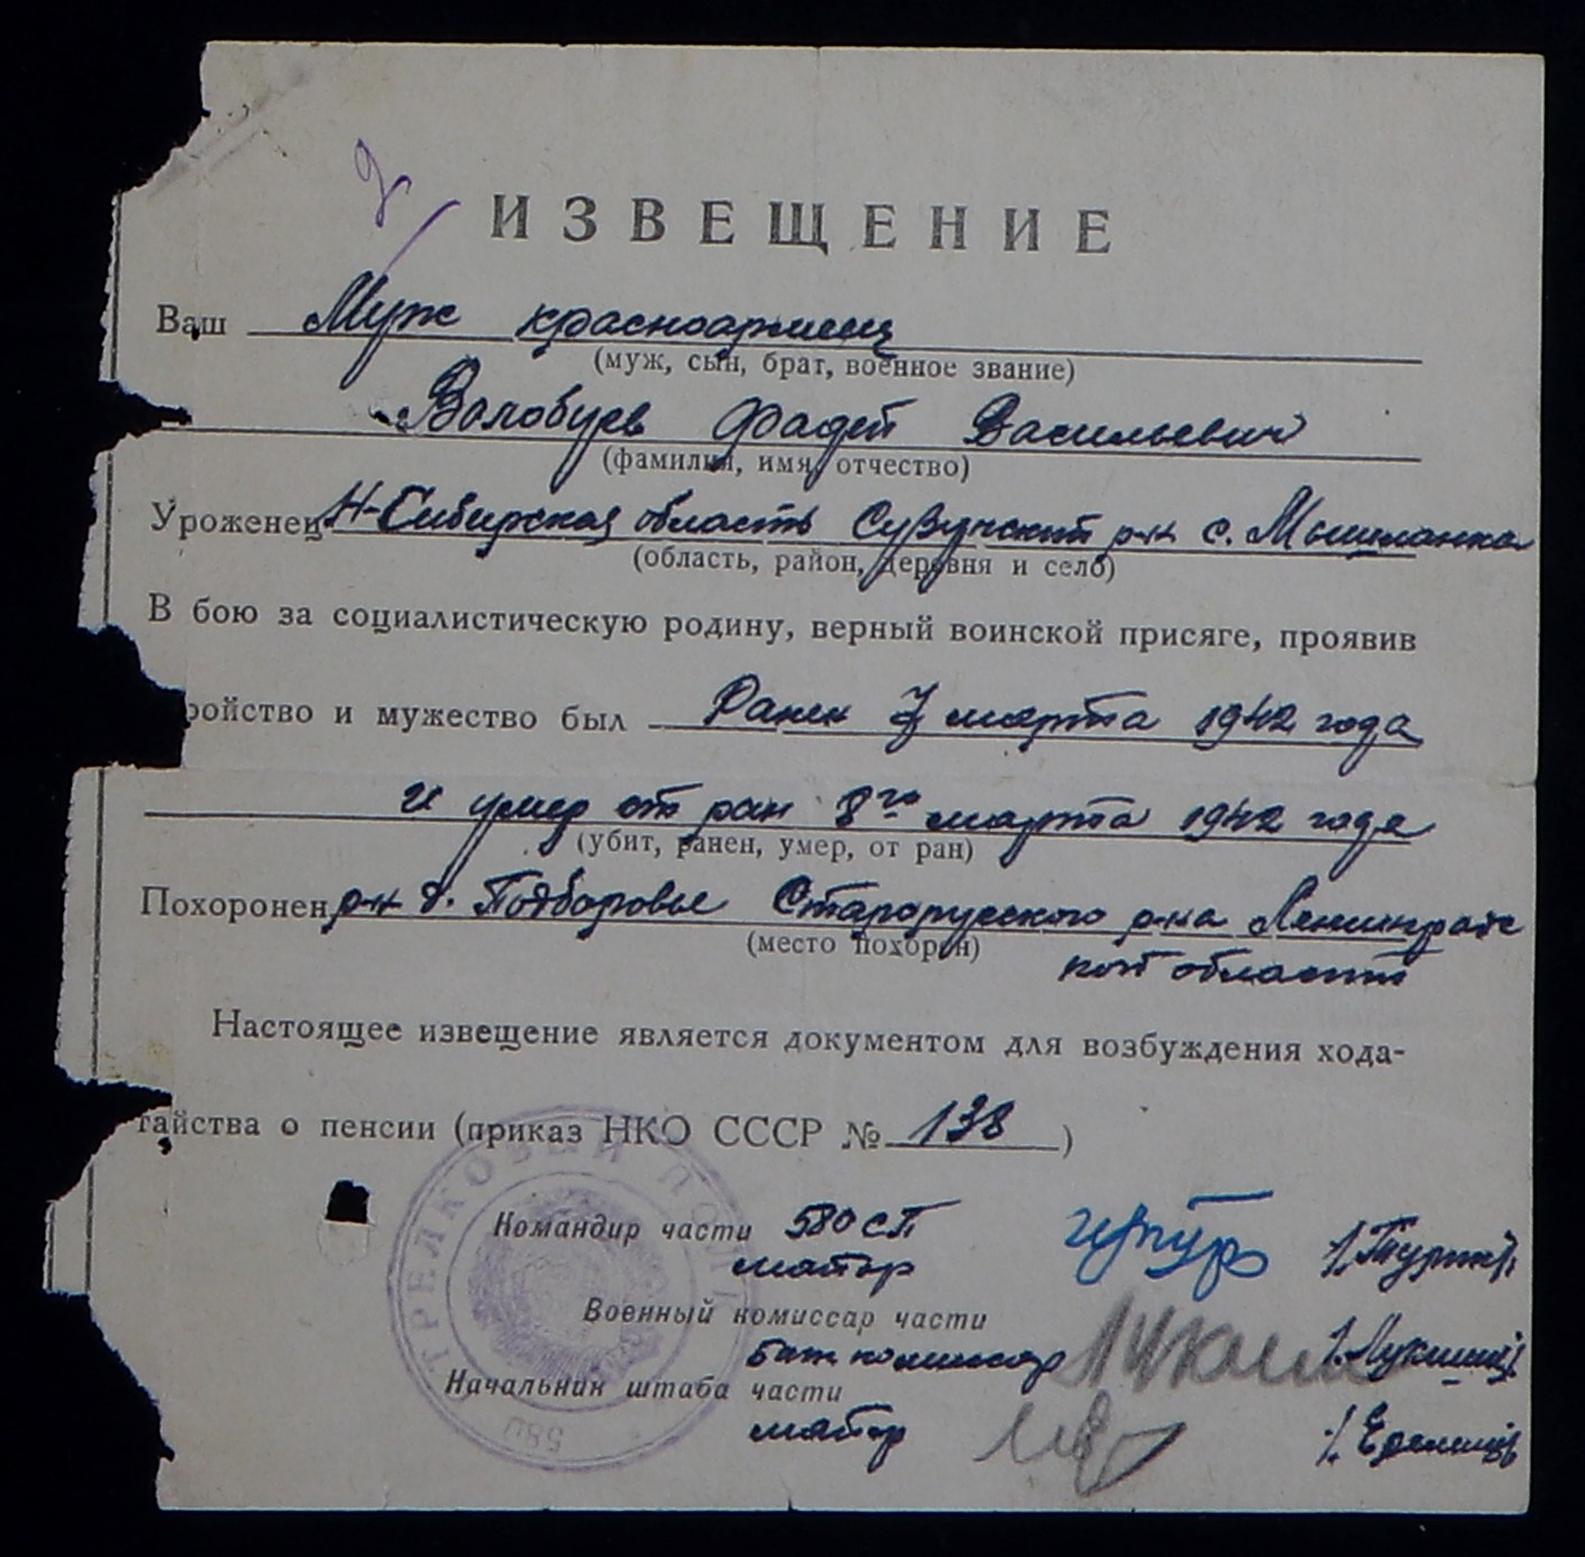 ИЗВЕЩЕНИЕ
Ваш Муж красноармеец
(муж, сын, брат, военное звание)
Волобуев Фадей Васильевич
(фамилия, имя, отчество)
Уроженец Н-Сибирская область Сузунский р-н с. Мышланка
(область, район, деревня и село)
В бою за социалистическую родину, верный воинской присяге, проявив
ройство и мужество был Ранен 7 марта 1942 года
и умер от ран 8го марта 1942 года
(убит, ранен, умер, от ран)
Похоронен р-н д. Подборовье Старорусского р-на Ленинградс
(место похорон)
кой области
Настоящее извещение является документом для возбуждения хода-
тайства о пенсии (приказ НКО СССР № 138)
Командир части 580 СП
майор
Военный комиссар части
Бат. комиссар
Начальник штаба части
майор
СТРЕЛКОВЫЙ ПОЛК
580